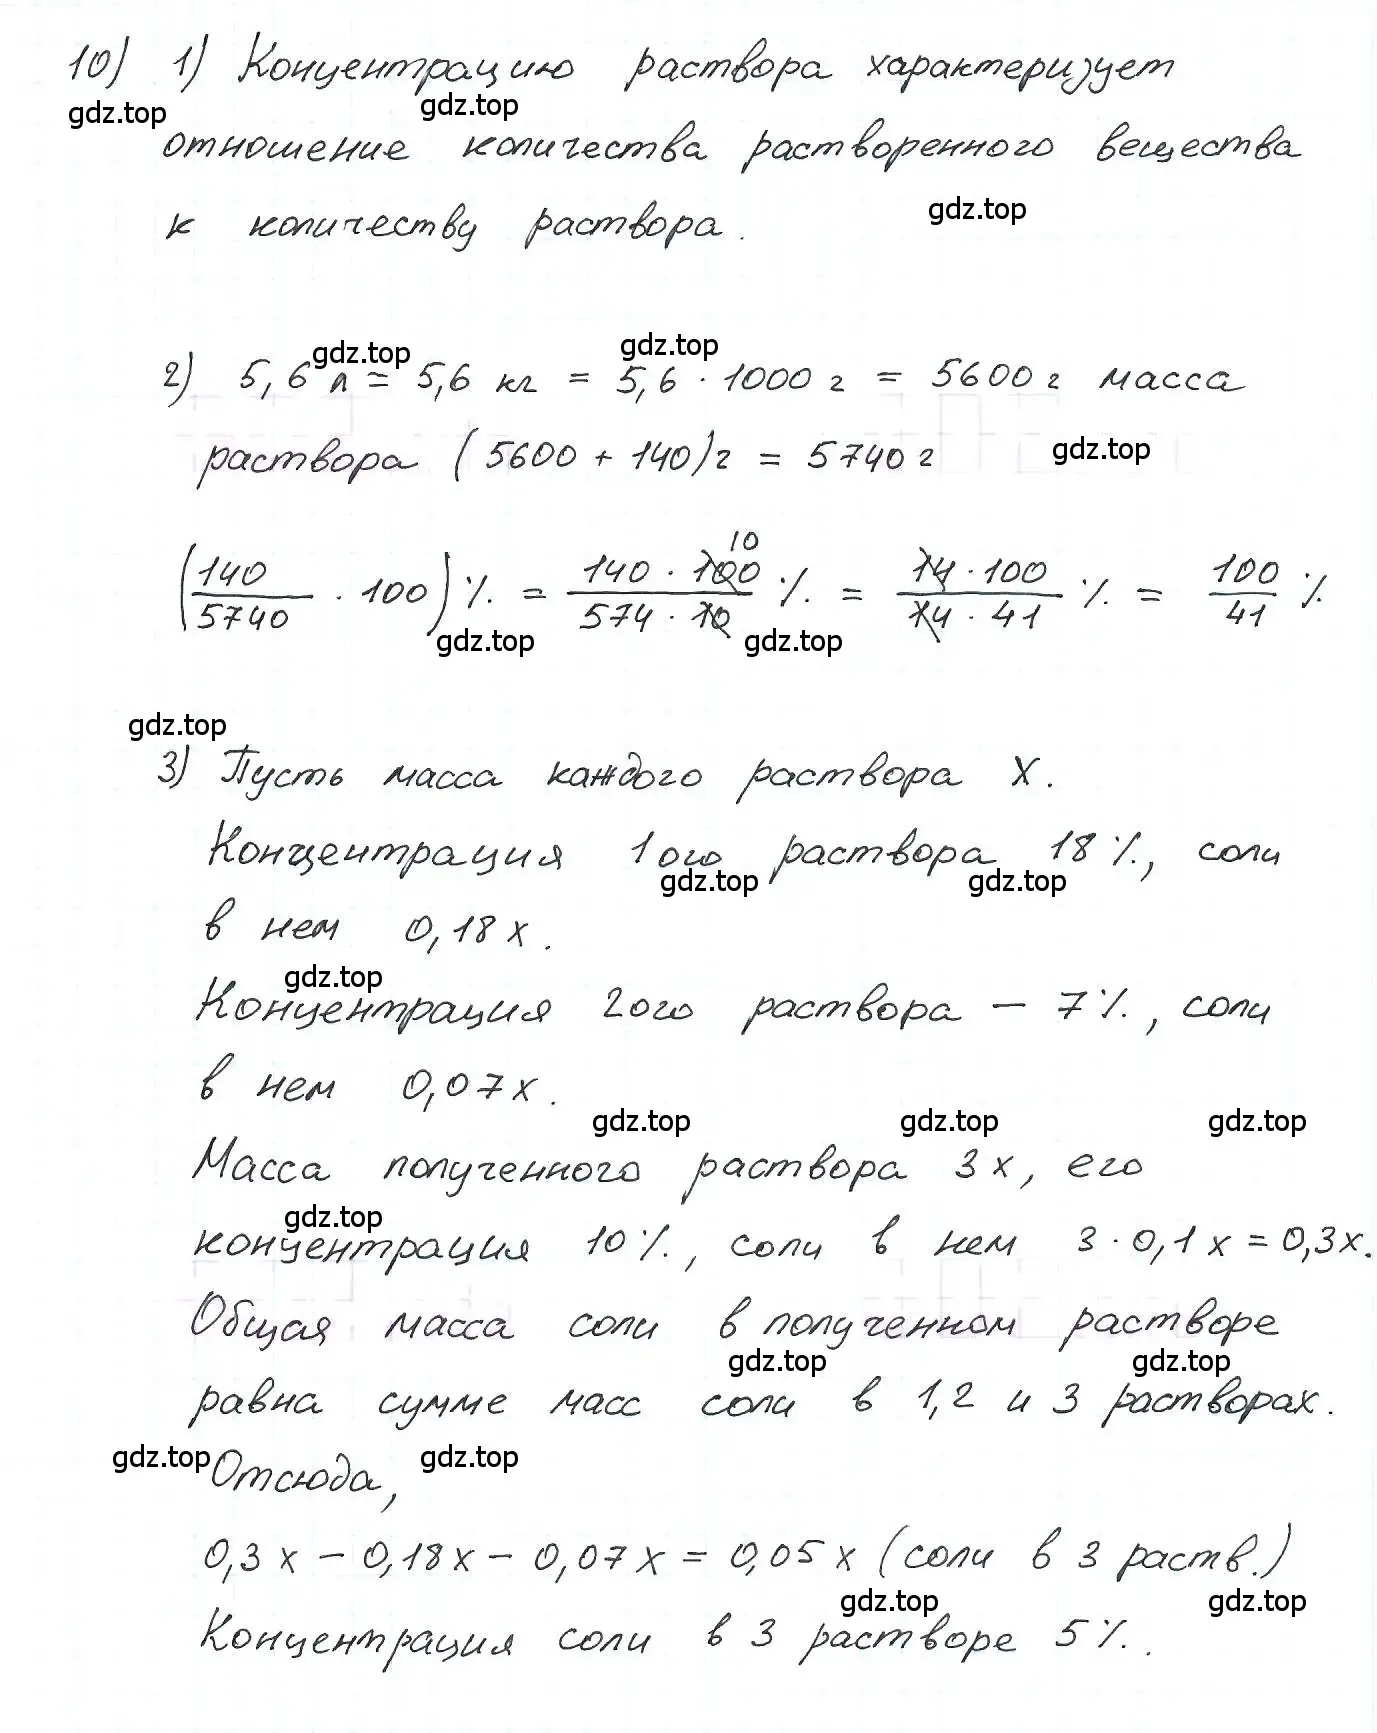 10) 1) Концентрацию раствора характеризует
gdz.top gdz.top
отношение количества растворенного вещества
gdz.top
к количеству раствора.
gdz.top gdz.top
2) 5,6 л = 5,6 кг = 5,6 · 1000 г = 5600 г масса
раствора (5600 + 140) г = 5740 г gdz.top
(140/5740 · 100) % = 140 · 100 10/574 · 10 % = 14 · 100/14 · 41 % = 100/41 %
gdz.top gdz.top
gdz.top
3) Пусть масса каждого раствора X.
Концентрация 1ого раствора 18 %, соли
gdz.top gdz.top
в нем 0,18x.
gdz.top
Концентрация 2ого раствора – 7 %, соли
в нем 0,07x.
gdz.top gdz.top gdz.top
Масса полученного раствора 3x, его
gdz.top
концентрация 10 %, соли в нем 3 · 0,1x = 0,3x.
Общая масса соли в полученном растворе
gdz.top gdz.top
равна сумме масс соли в 1,2 и 3 растворах.
gdz.top gdz.top
Отсюда,
0,3x – 0,18x – 0,07x = 0,05x (соли в 3 раств.)
gdz.top gdz.top
Концентрация соли в 3 растворе 5 %.